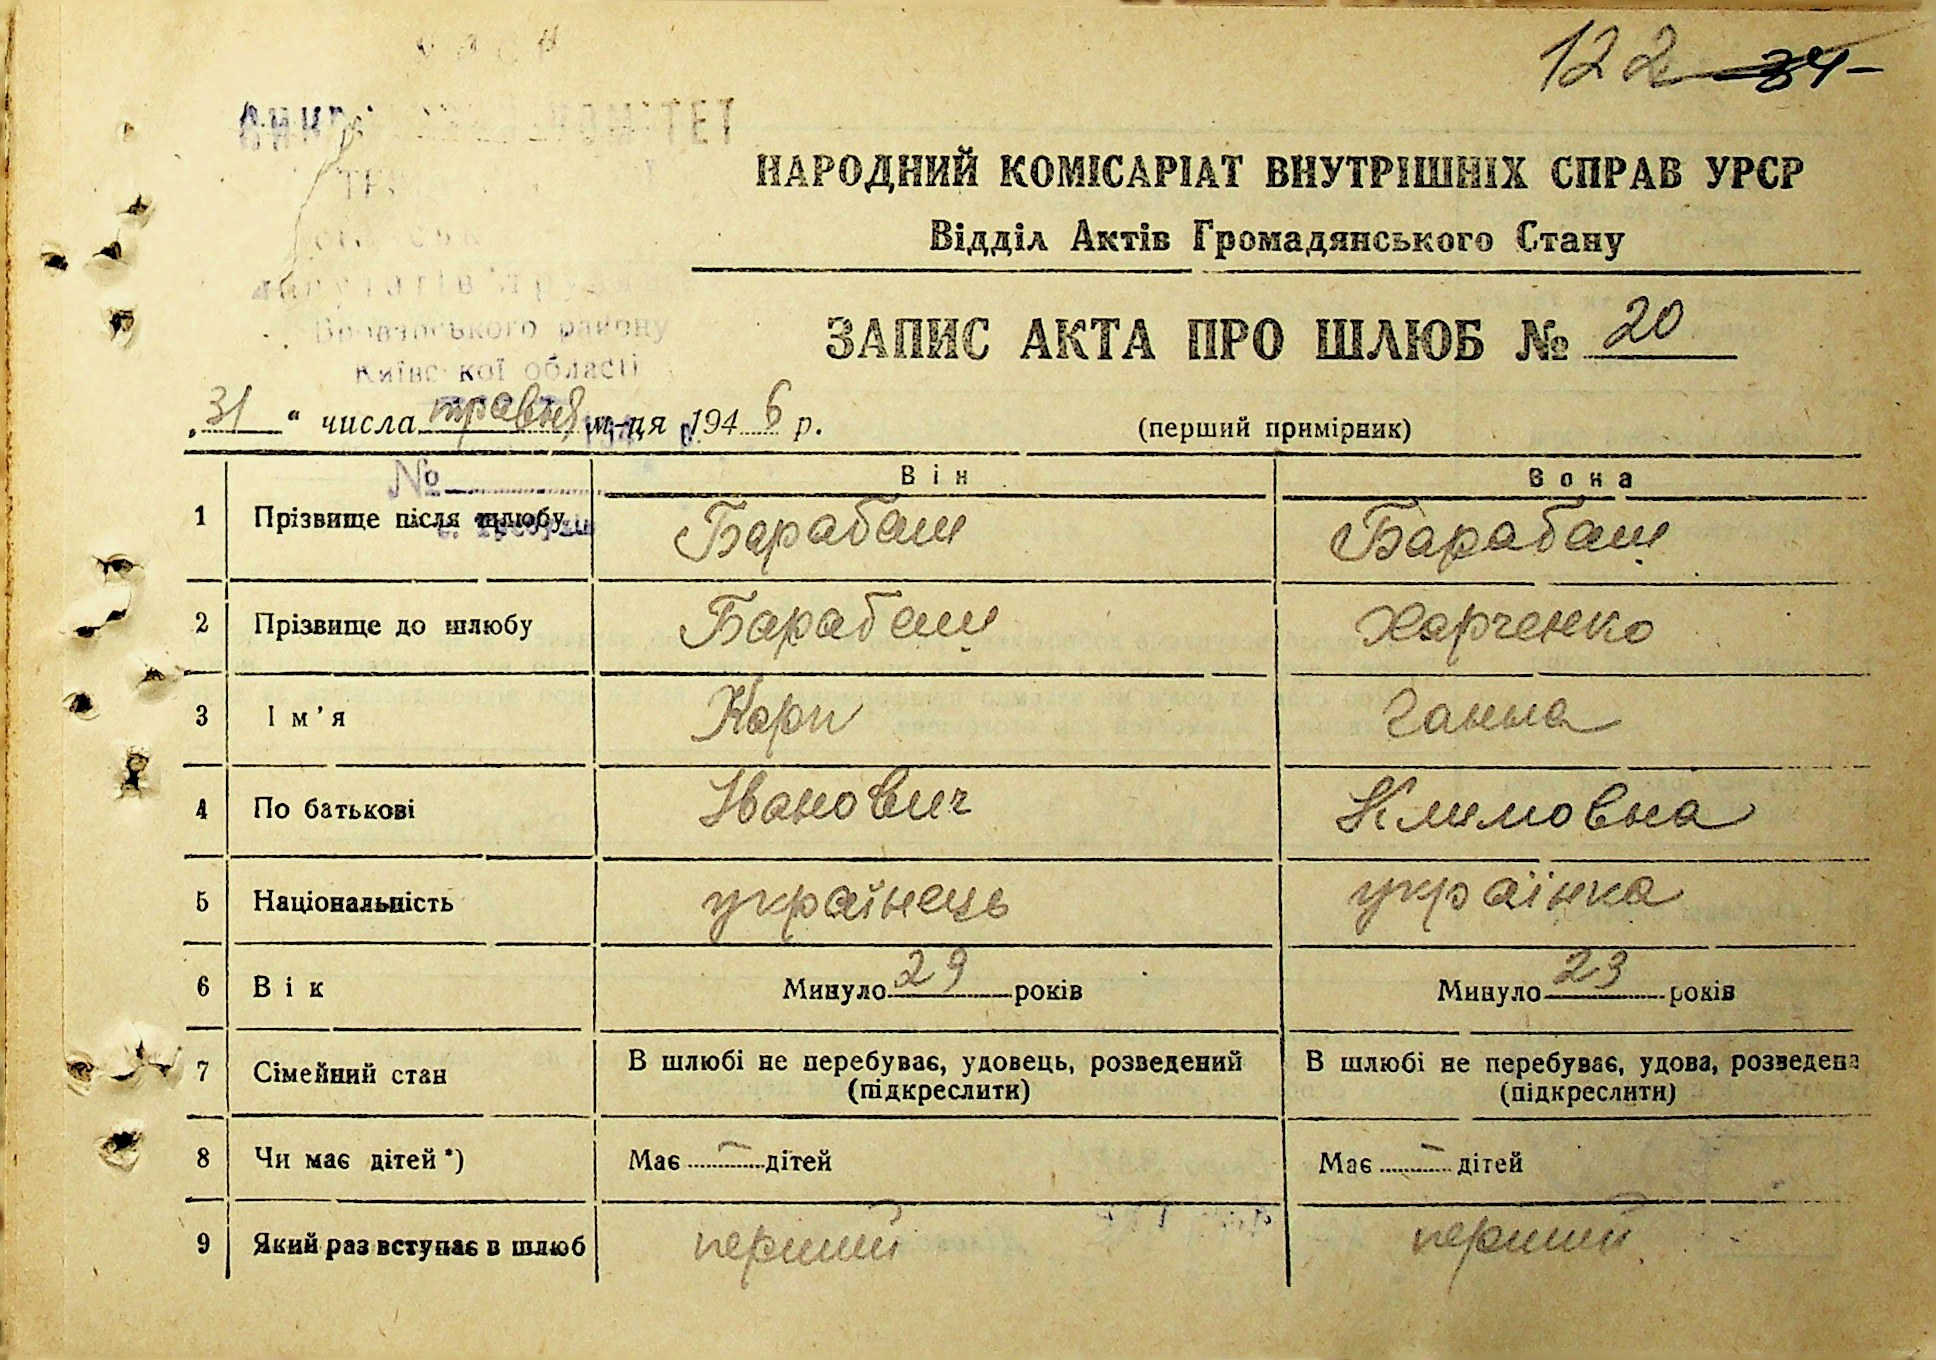 122 34
КОМІТЕТ
НАРОДНИЙ КОМІСАРІАТ ВНУТРІШНІХ СПРАВ УРСР
Відділ Актів Громадянського Стану
депутатів трудящих
Броварського району
Київської області
ЗАПИС АКТА ПРО ШЛЮБ № 20
„31“ числа травня м-ця 1946 р. (перший примірник)
№
Він Вона
1 Прізвище після шлюбу Барабаш Барабаш
2 Прізвище до шлюбу Барабаш Харченко
3 Ім'я Карп Ганна
4 По батькові Іванович Климовна
5 Національність українець українка
6 Вік Минуло 29 років Минуло 23 років
7 Сімейний стан В шлюбі не перебуває, удовець, розведений (підкреслити) В шлюбі не перебуває, удова, розведена (підкреслити)
8 Чи має дітей *) Має — дітей Має — дітей
9 Який раз вступає в шлюб перший перший